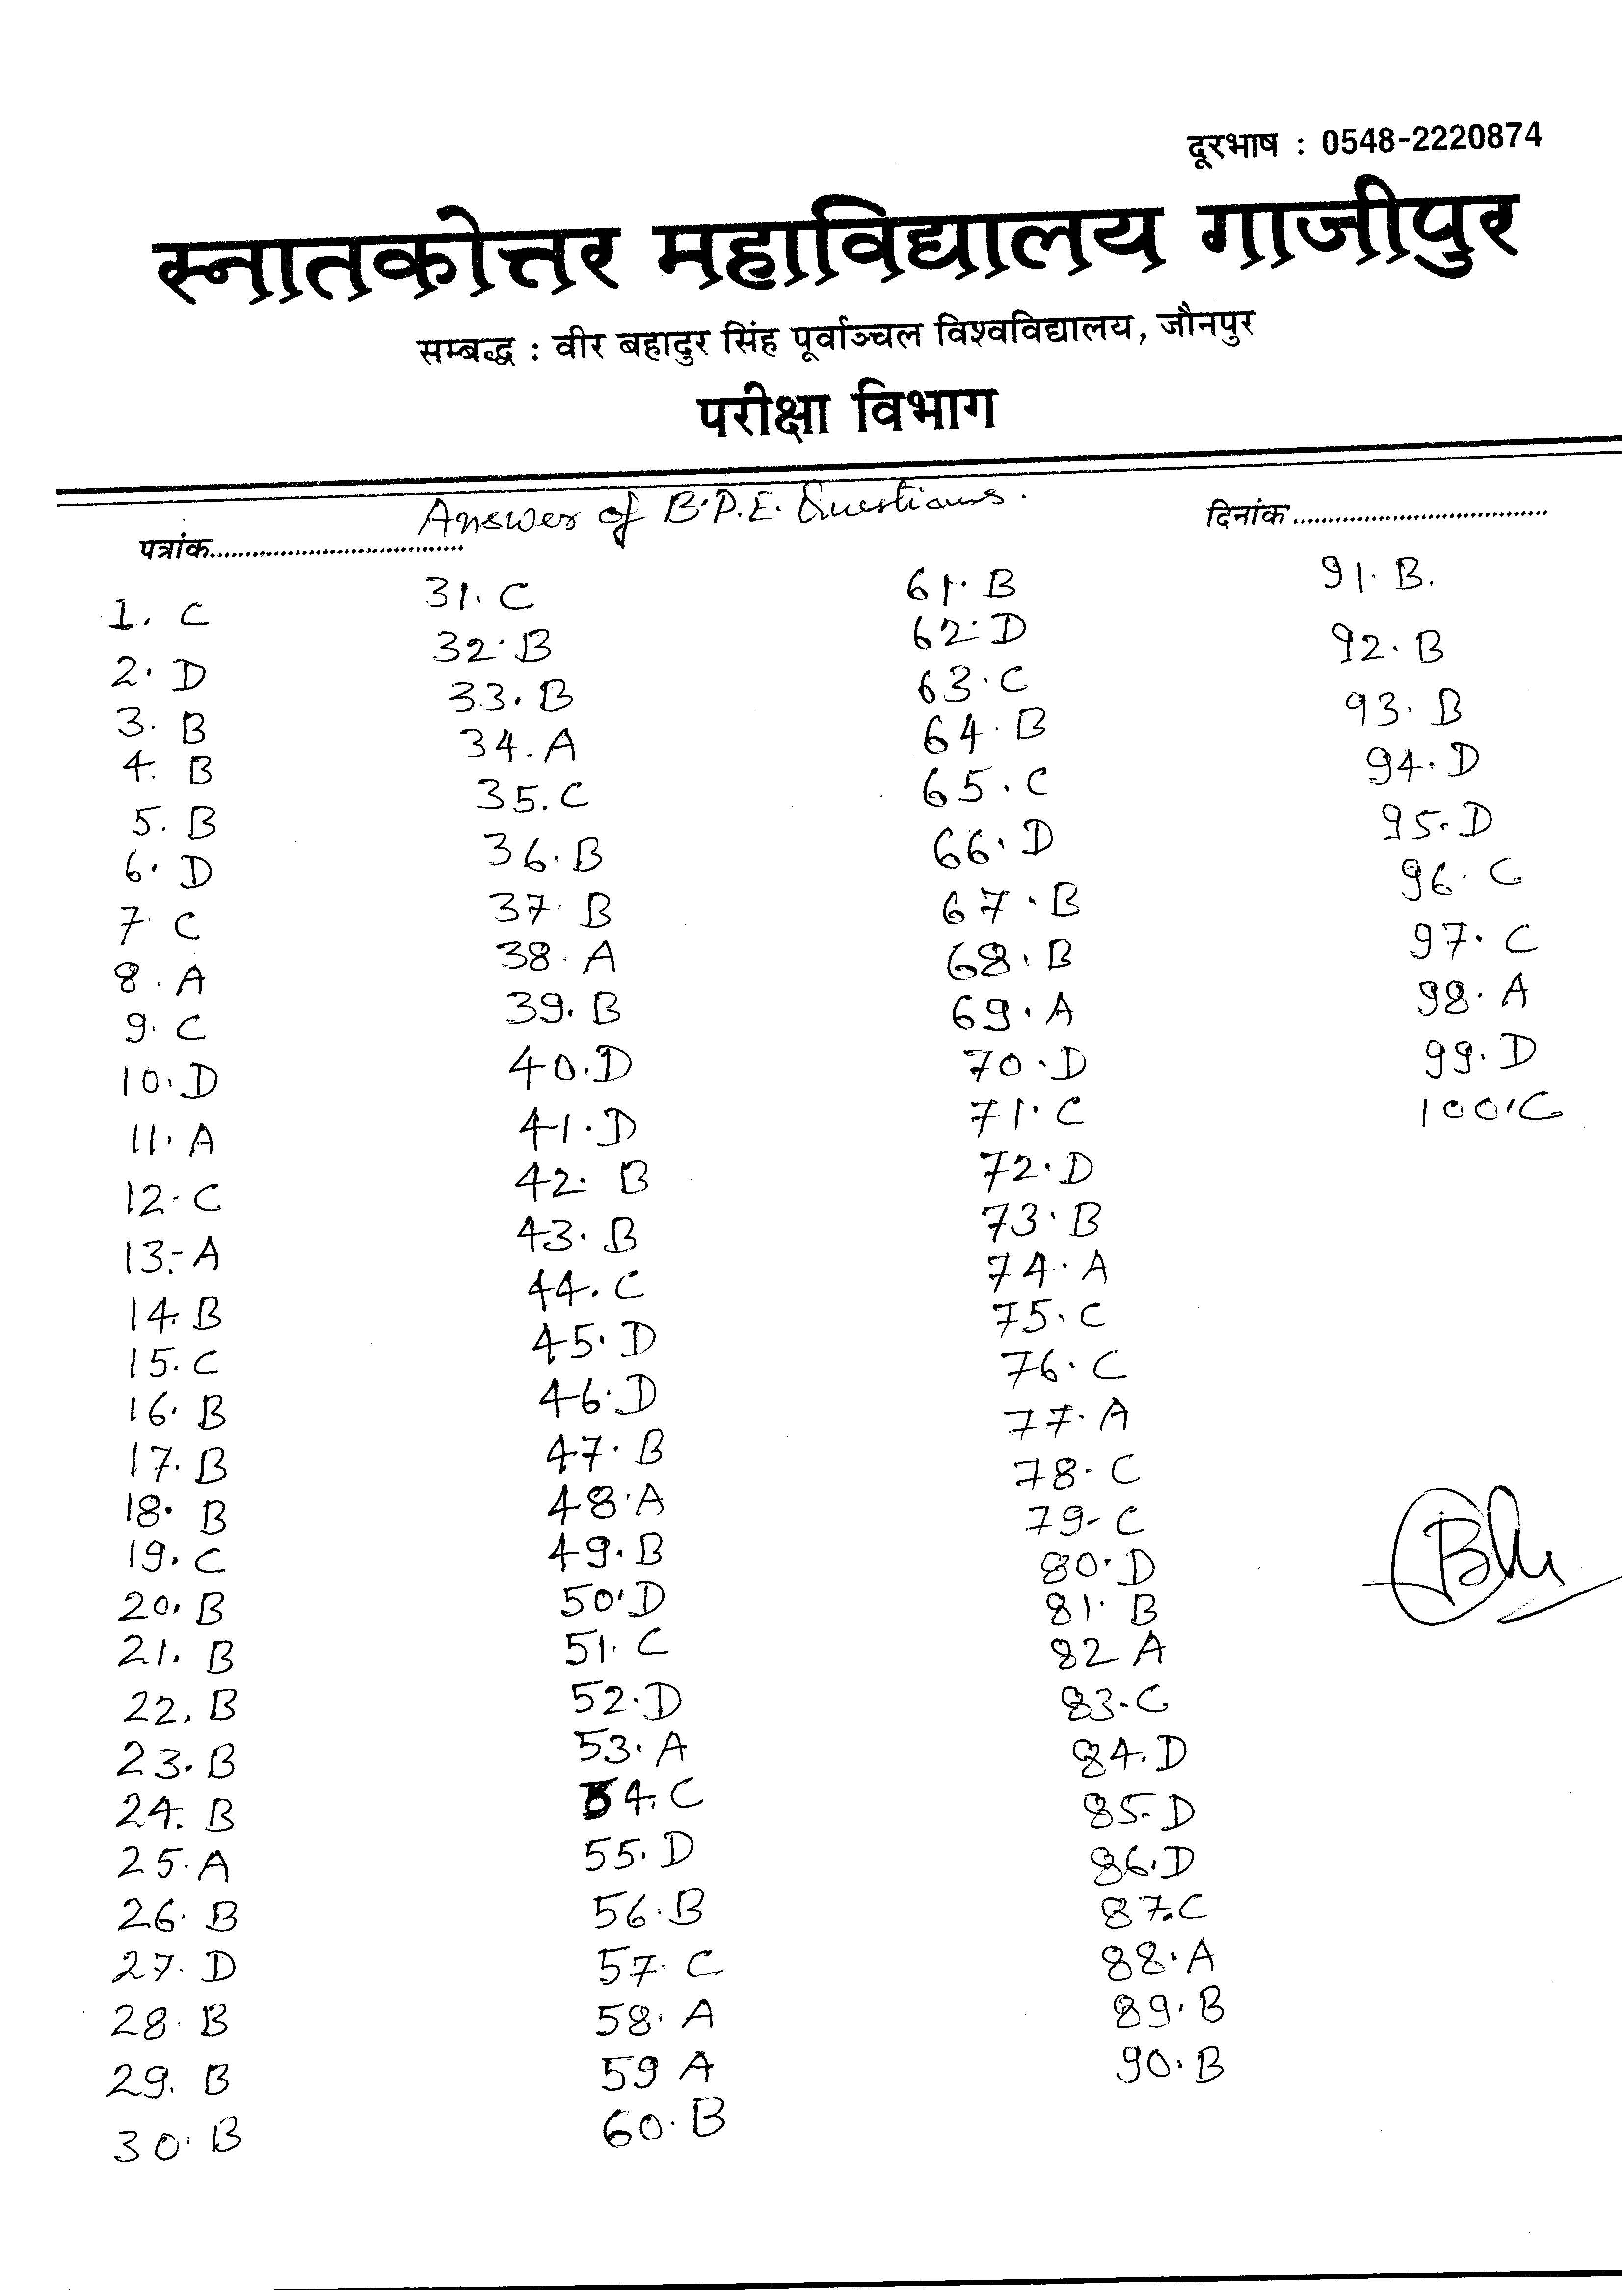 दूरभाष : 0548-2220874
स्नातकोत्तर महाविद्यालय गाजीपुर
सम्बद्ध : वीर बहादुर सिंह पूर्वाञ्चल विश्वविद्यालय, जौनपुर
परीक्षा विभाग
Answer of B.P.E. Questions.
पत्रांक..................................
दिनांक..................................
1. C
2. D
3. B
4. B
5. B
6. D
7. C
8. A
9. C
10. D
11. A
12. C
13.- A
14. B
15. C
16. B
17. B
18. B
19. C
20. B
21. B
22. B
23. B
24. B
25. A
26. B
27. D
28. B
29. B
30. B
31. C
32. B
33. B
34. A
35. C
36. B
37. B
38. A
39. B
40. D
41. D
42. B
43. B
44. C
45. D
46. D
47. B
48. A
49. B
50. D
51. C
52. D
53. A
54. C
55. D
56. B
57. C
58. A
59 A
60. B
61. B
62. D
63. C
64. B
65. C
66. D
67. B
68. B
69. A
70. D
71. C
72. D
73. B
74. A
75. C
76. C
77. A
78. C
79- C
80. D
81. B
82 A
83. C
84. D
85. D
86. D
87. C
88. A
89. B
90. B
91. B.
92. B
93. B
94. D
95. D
96. C
97. C
98. A
99. D
100. C